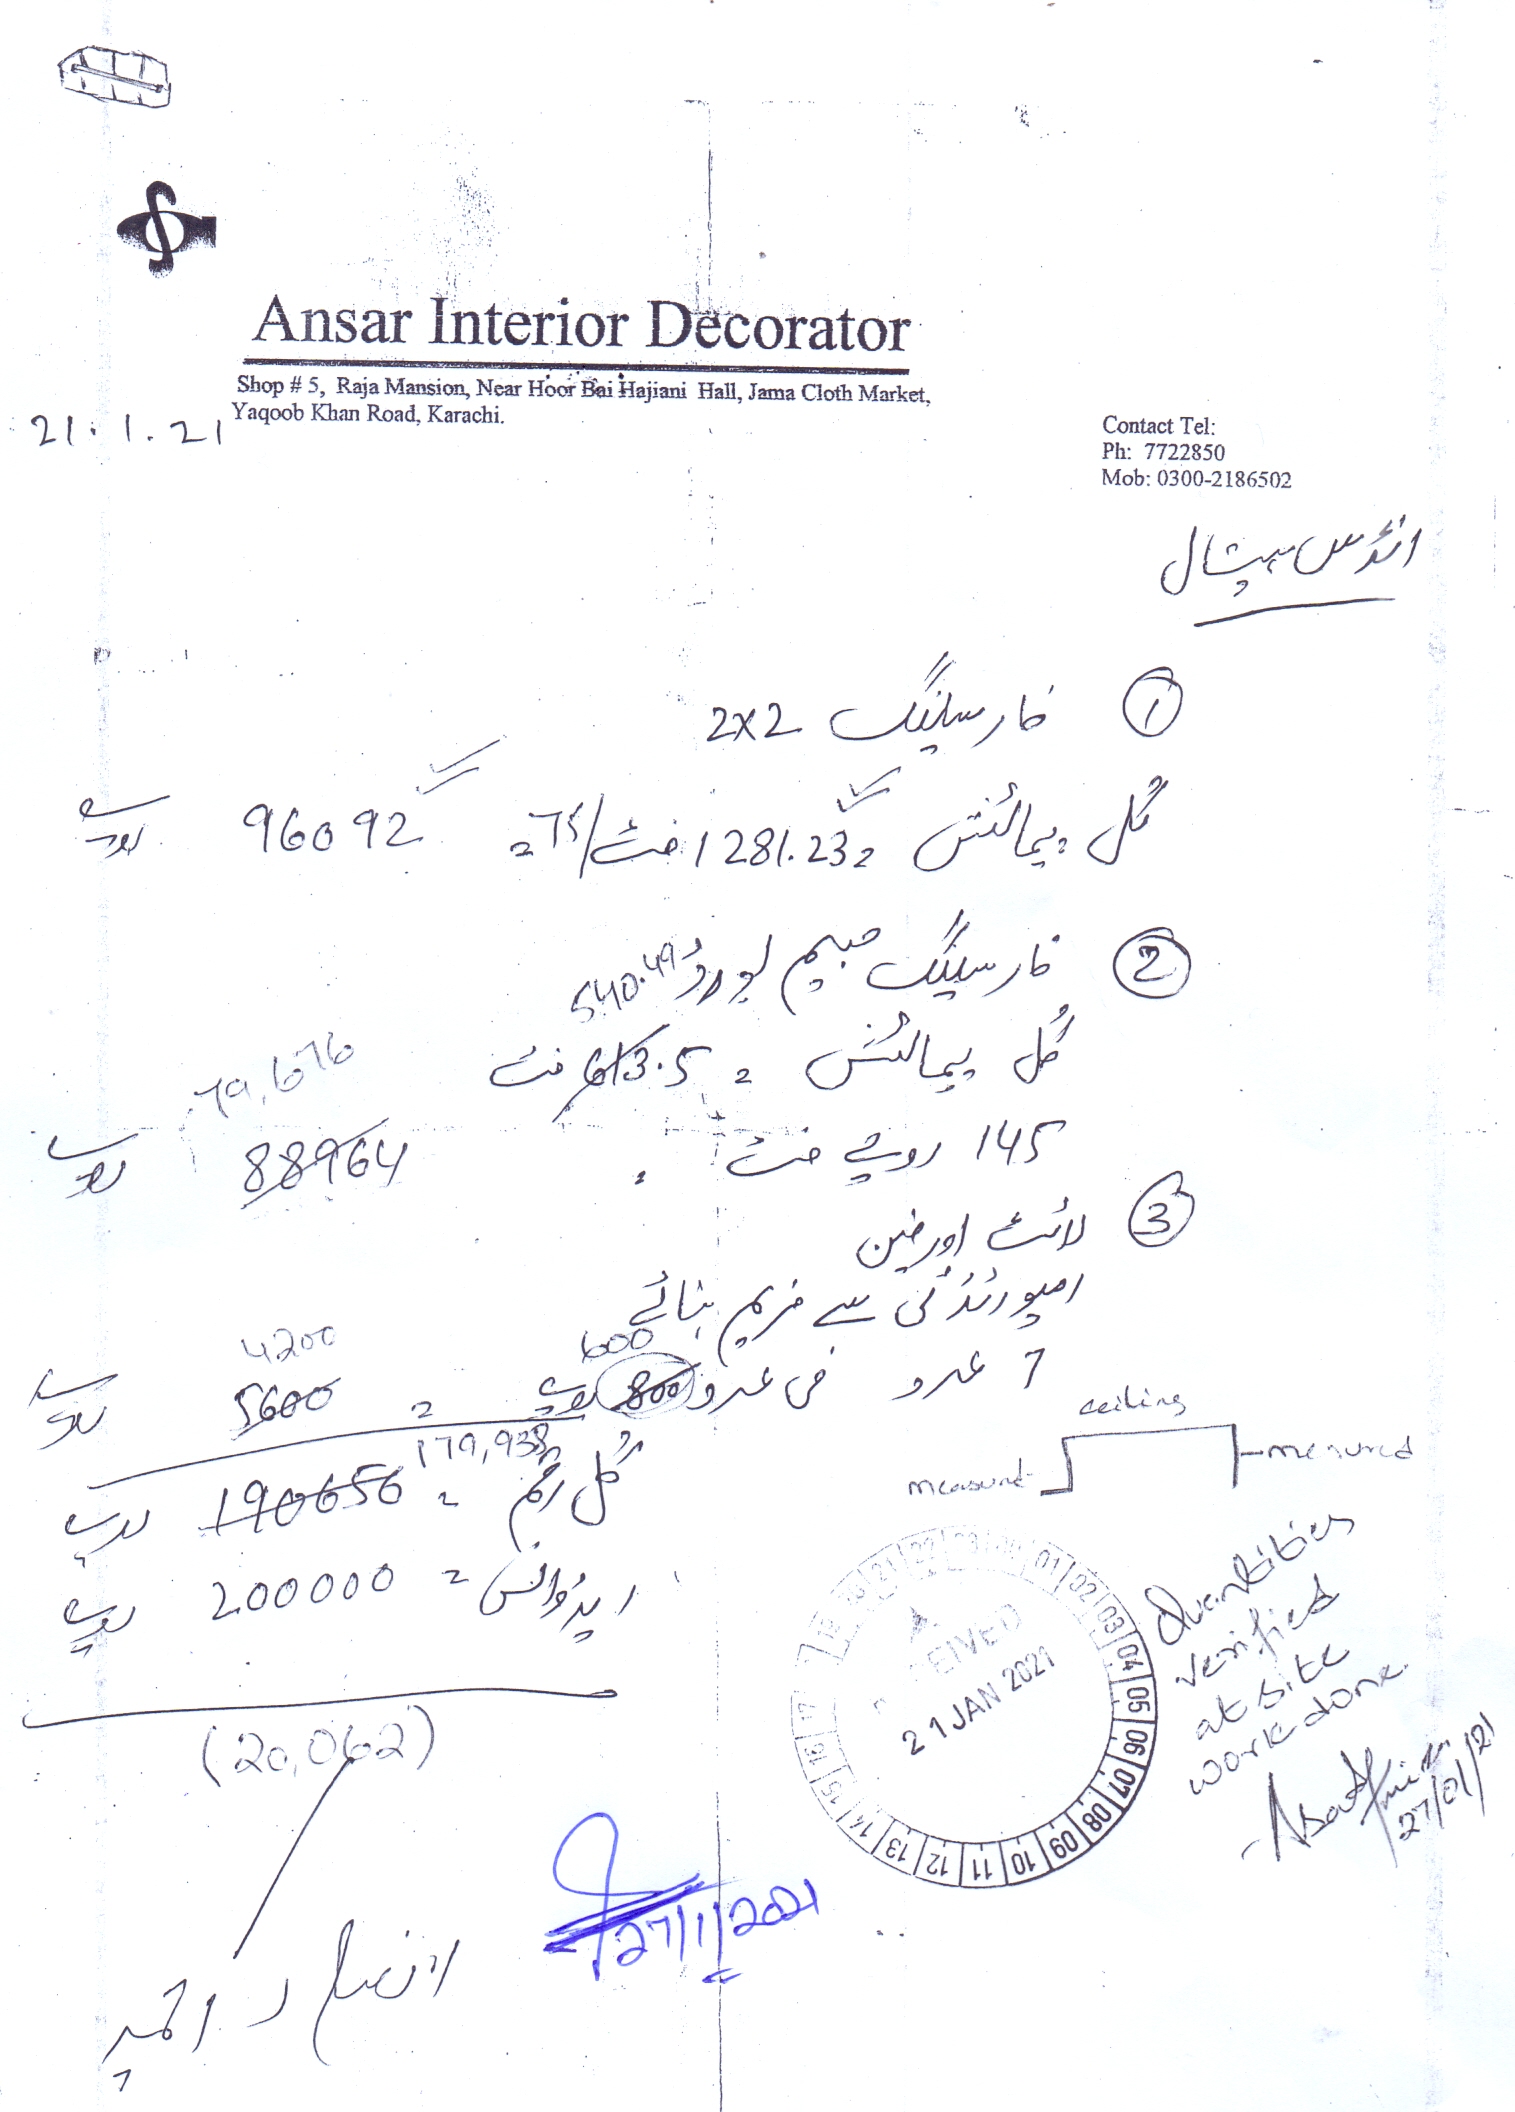 Ansar Interior Decorator
Shop # 5, Raja Mansion, Near Hoor Bai Hajiani Hall, Jama Cloth Market,
Yaqoob Khan Road, Karachi.
21.1.21
Contact Tel:
Ph: 7722850
Mob: 0300-2186502
انڈس ہسپتال
① فارسیلنگ 2x2
کُل پیمائش = 1281.23 فٹ /75 = 96092 روپے
② فارسیلنگ جپسم بورڈ
540.49
کُل پیمائش = 613.5 فٹ
79,676
145 روپے فٹ = 88964 روپے
③ لائٹ اور فین
امپورٹڈ ٹی سے فریم بنائے
600
4200
7 عدد فی عدد 800 روپے = 5600 روپے
179,938
کُل رقم = 190656 روپے
ایڈوانس = 200000 روپے
(20,062)
ceiling
measured
measured
RECEIVED
21 JAN 2021
01 02 03 04 05 06 07 08 09 10 11 12 13 14 15 16 17 18 19 20 21 22 23 24
Quantities
verified
at site
work done.
27/01/21
27/1/2021
انصار احمد